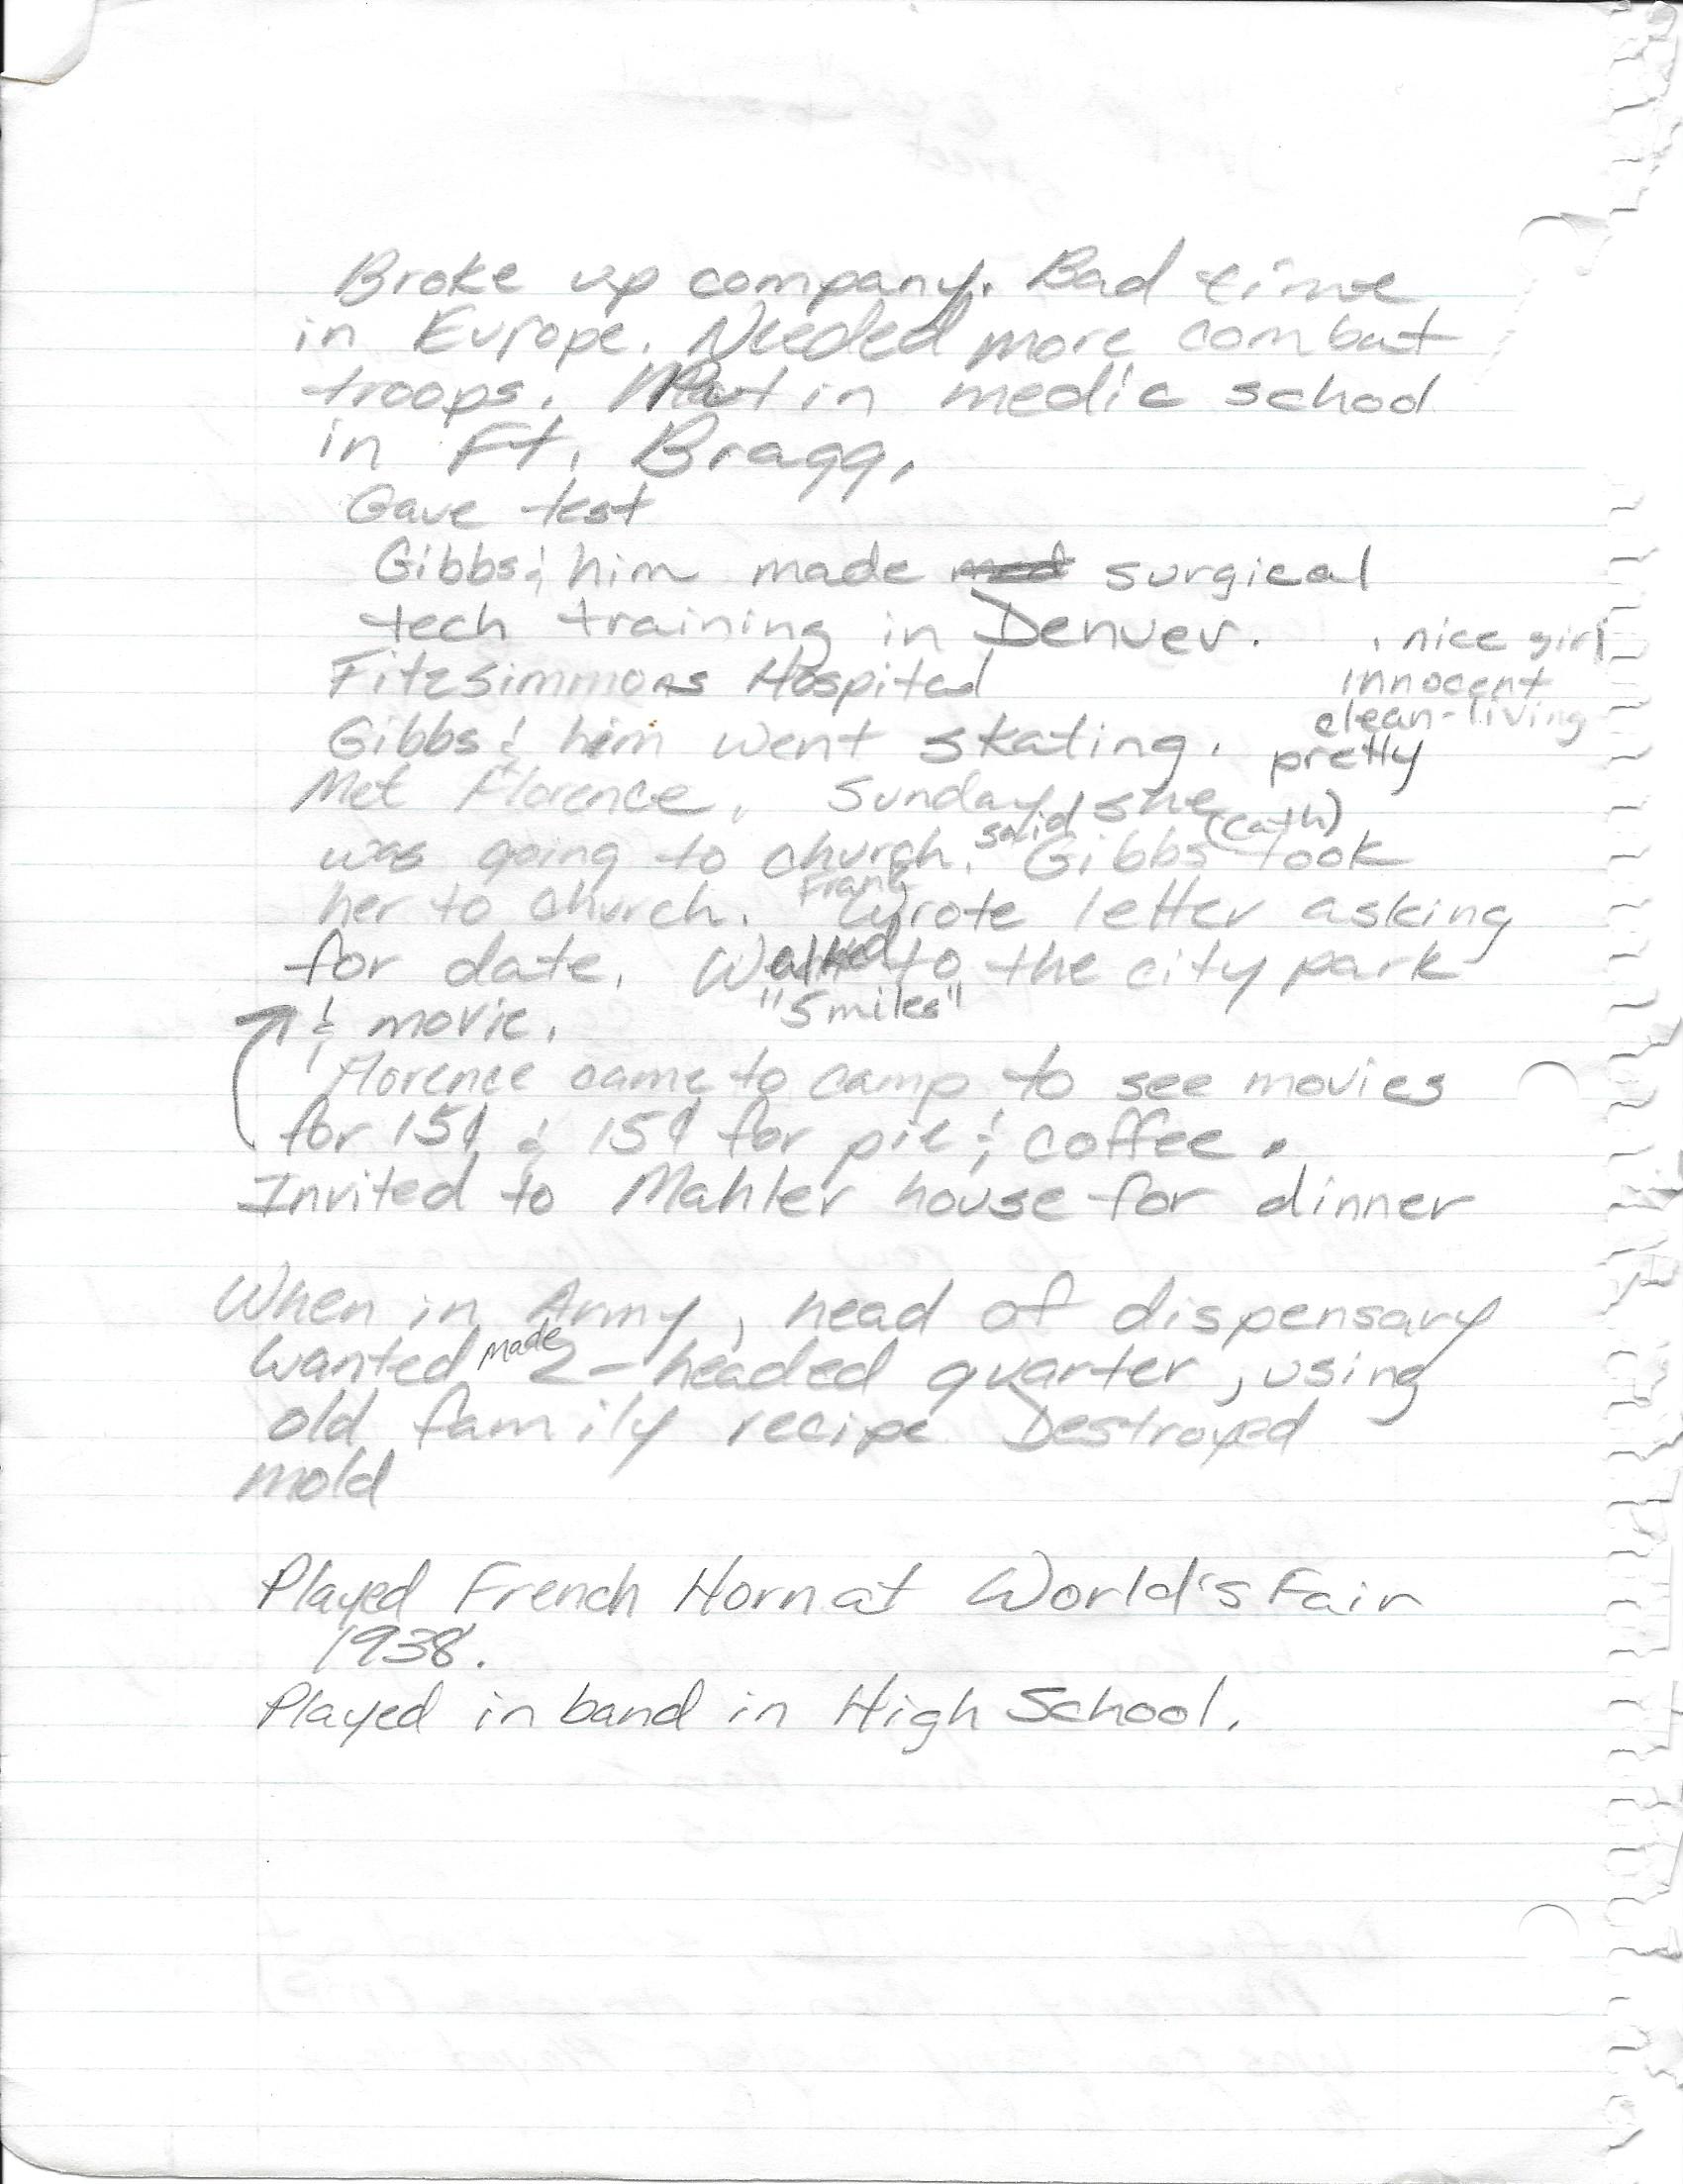 Broke up company. Bad time
in Europe. Needed more combat
troops. Put in medic school
in Ft. Bragg.
Gave test
Gibbs & him made med surgical
tech training in Denver.
Fitzsimmons Hospital
Gibbs & him went skating.
, nice girl
innocent
clean-living
pretty
Met Florence. Sunday she
said (Cath)
was going to church. Gibbs took
Frank
her to church. Wrote letter asking
for date. Walked to the city park
"5 miles"
& movie.
Florence came to camp to see movies
for 15¢ & 15¢ for pie & coffee.
Invited to Mahler house for dinner
When in Army, head of dispensary
made
wanted 2-headed quarter, using
old family recipe Destroyed
mold
Played French Horn at World's Fair
1938.
Played in band in High School.